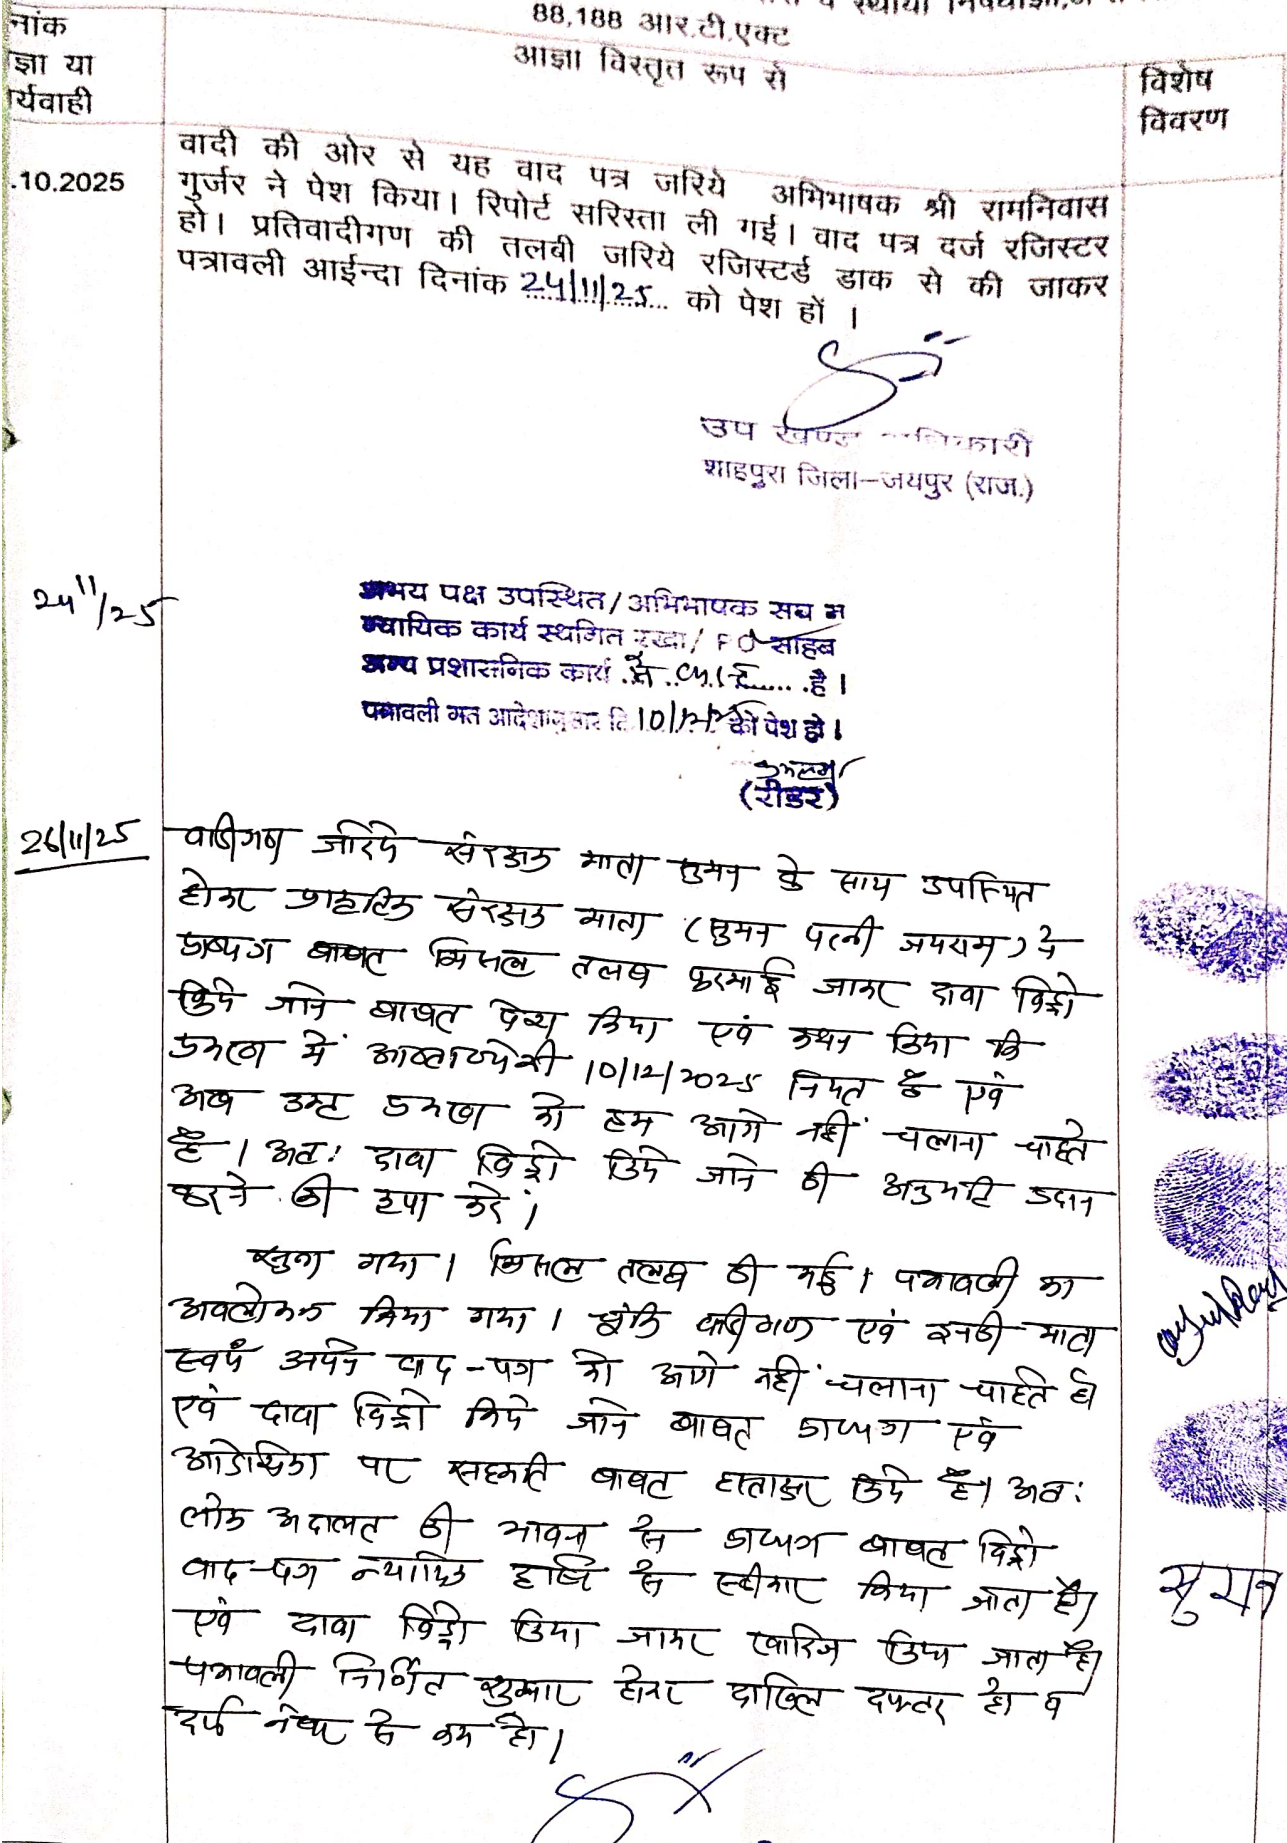 88,188 आर.टी.एक्ट
नांक
ज्ञा या
र्यवाही
आज्ञा विस्तृत रूप से
विशेष
विवरण
.10.2025
वादी की ओर से यह वाद पत्र जरिये अभिभाषक श्री रामनिवास
गुर्जर ने पेश किया। रिपोर्ट सरिस्ता ली गई। वाद पत्र दर्ज रजिस्टर
हो। प्रतिवादीगण की तलबी जरिये रजिस्टर्ड डाक से की जाकर
पत्रावली आईन्दा दिनांक 24/11/25 को पेश हों ।
उप खण्ड अधिकारी
शाहपुरा जिला-जयपुर (राज.)
24/11/25
उभय पक्ष उपस्थित/अभिभाषक संघ ने
न्यायिक कार्य स्थगित रखा/ P O साहब
अन्य प्रशासनिक कार्य में है।
पत्रावली गत आदेशानुसार दि 10/12/25 को पेश हो।
(रीडर)
26/11/25
वादीगण जरिये संरक्षक माता सुमन के साथ उपस्थित
होकर प्राकृतिक संरक्षक माता (सुमन पत्नी जयराम) ने
प्रा०पत्र बाबत मिसल तलब फरमाई जाकर दावा विड्रो
किये जाने बाबत पेश किया एवं कथन किया कि
प्रकरण में 10/12/2025 नियत है एवं
अब उक्त प्रकरण को हम आगे नहीं चलाना चाहते
है। अतः दावा विड्रो किये जाने की अनुमति प्रदान
करने की कृपा करें।
सुना गया। मिसल तलब की गई। पत्रावली का
अवलोकन किया गया। चूंकि वादीगण एवं इनकी माता
स्वयं अपने वाद-पत्र को आगे नहीं चलाना चाहते है
एवं दावा विड्रो किये जाने बाबत प्रा०पत्र एवं
आदेशिका पर सहमति बाबत हस्ताक्षर किये है। अतः
लोक अदालत की भावना से प्रा०पत्र बाबत विड्रो
वाद-पत्र न्यायिक दृष्टि से स्वीकार किया जाता है।
एवं दावा विड्रो किया जाकर खारिज किया जाता है।
पत्रावली निर्णित शुमार होकर दाखिल दफ्तर हो व
दर्ज नम्बर से कम हो।
सुमन